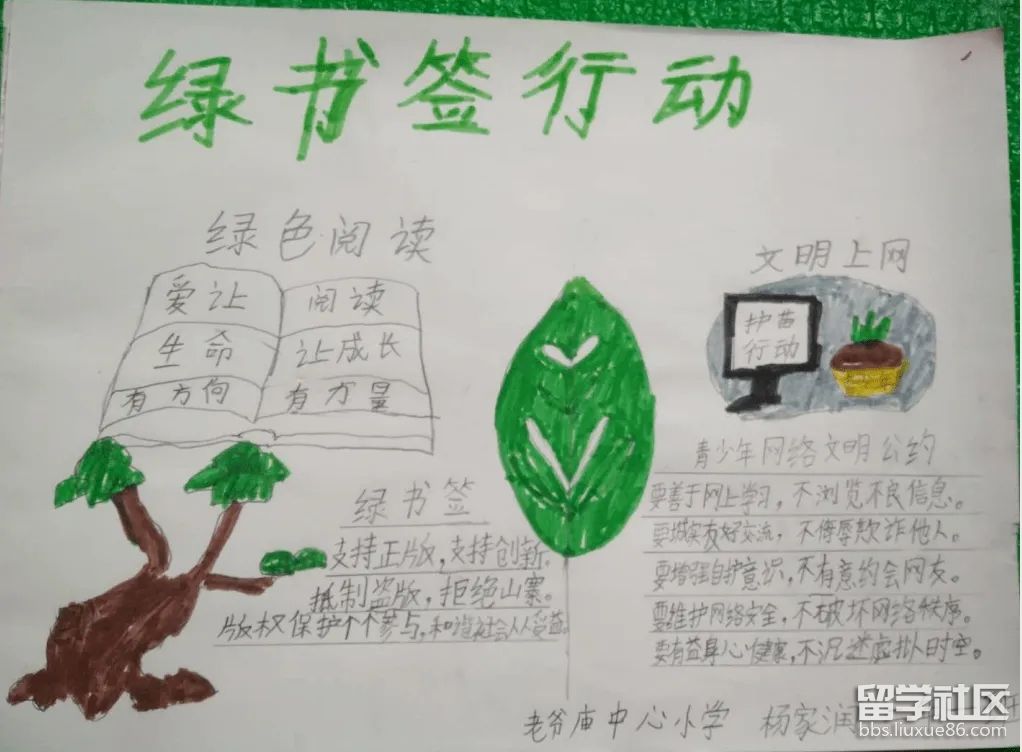 绿书签行动
绿色阅读
爱让
生命
有方向
阅读
让成长
有力量
绿书签
支持正版，支持创新。
抵制盗版，拒绝山寨。
版权保护个个参与，和谐社会人人受益。
文明上网
护苗
行动
青少年网络文明公约
要善于网上学习，不浏览不良信息。
要城实友好交流，不侮辱欺诈他人。
要增强自护意识，不有意约会网友。
要维护网络安全，不破坏网络秩序。
要有益身心健康，不沉迷虚拟时空。
老爷庙中心小学 杨家润
留学社区
bbs.liuxue86.com